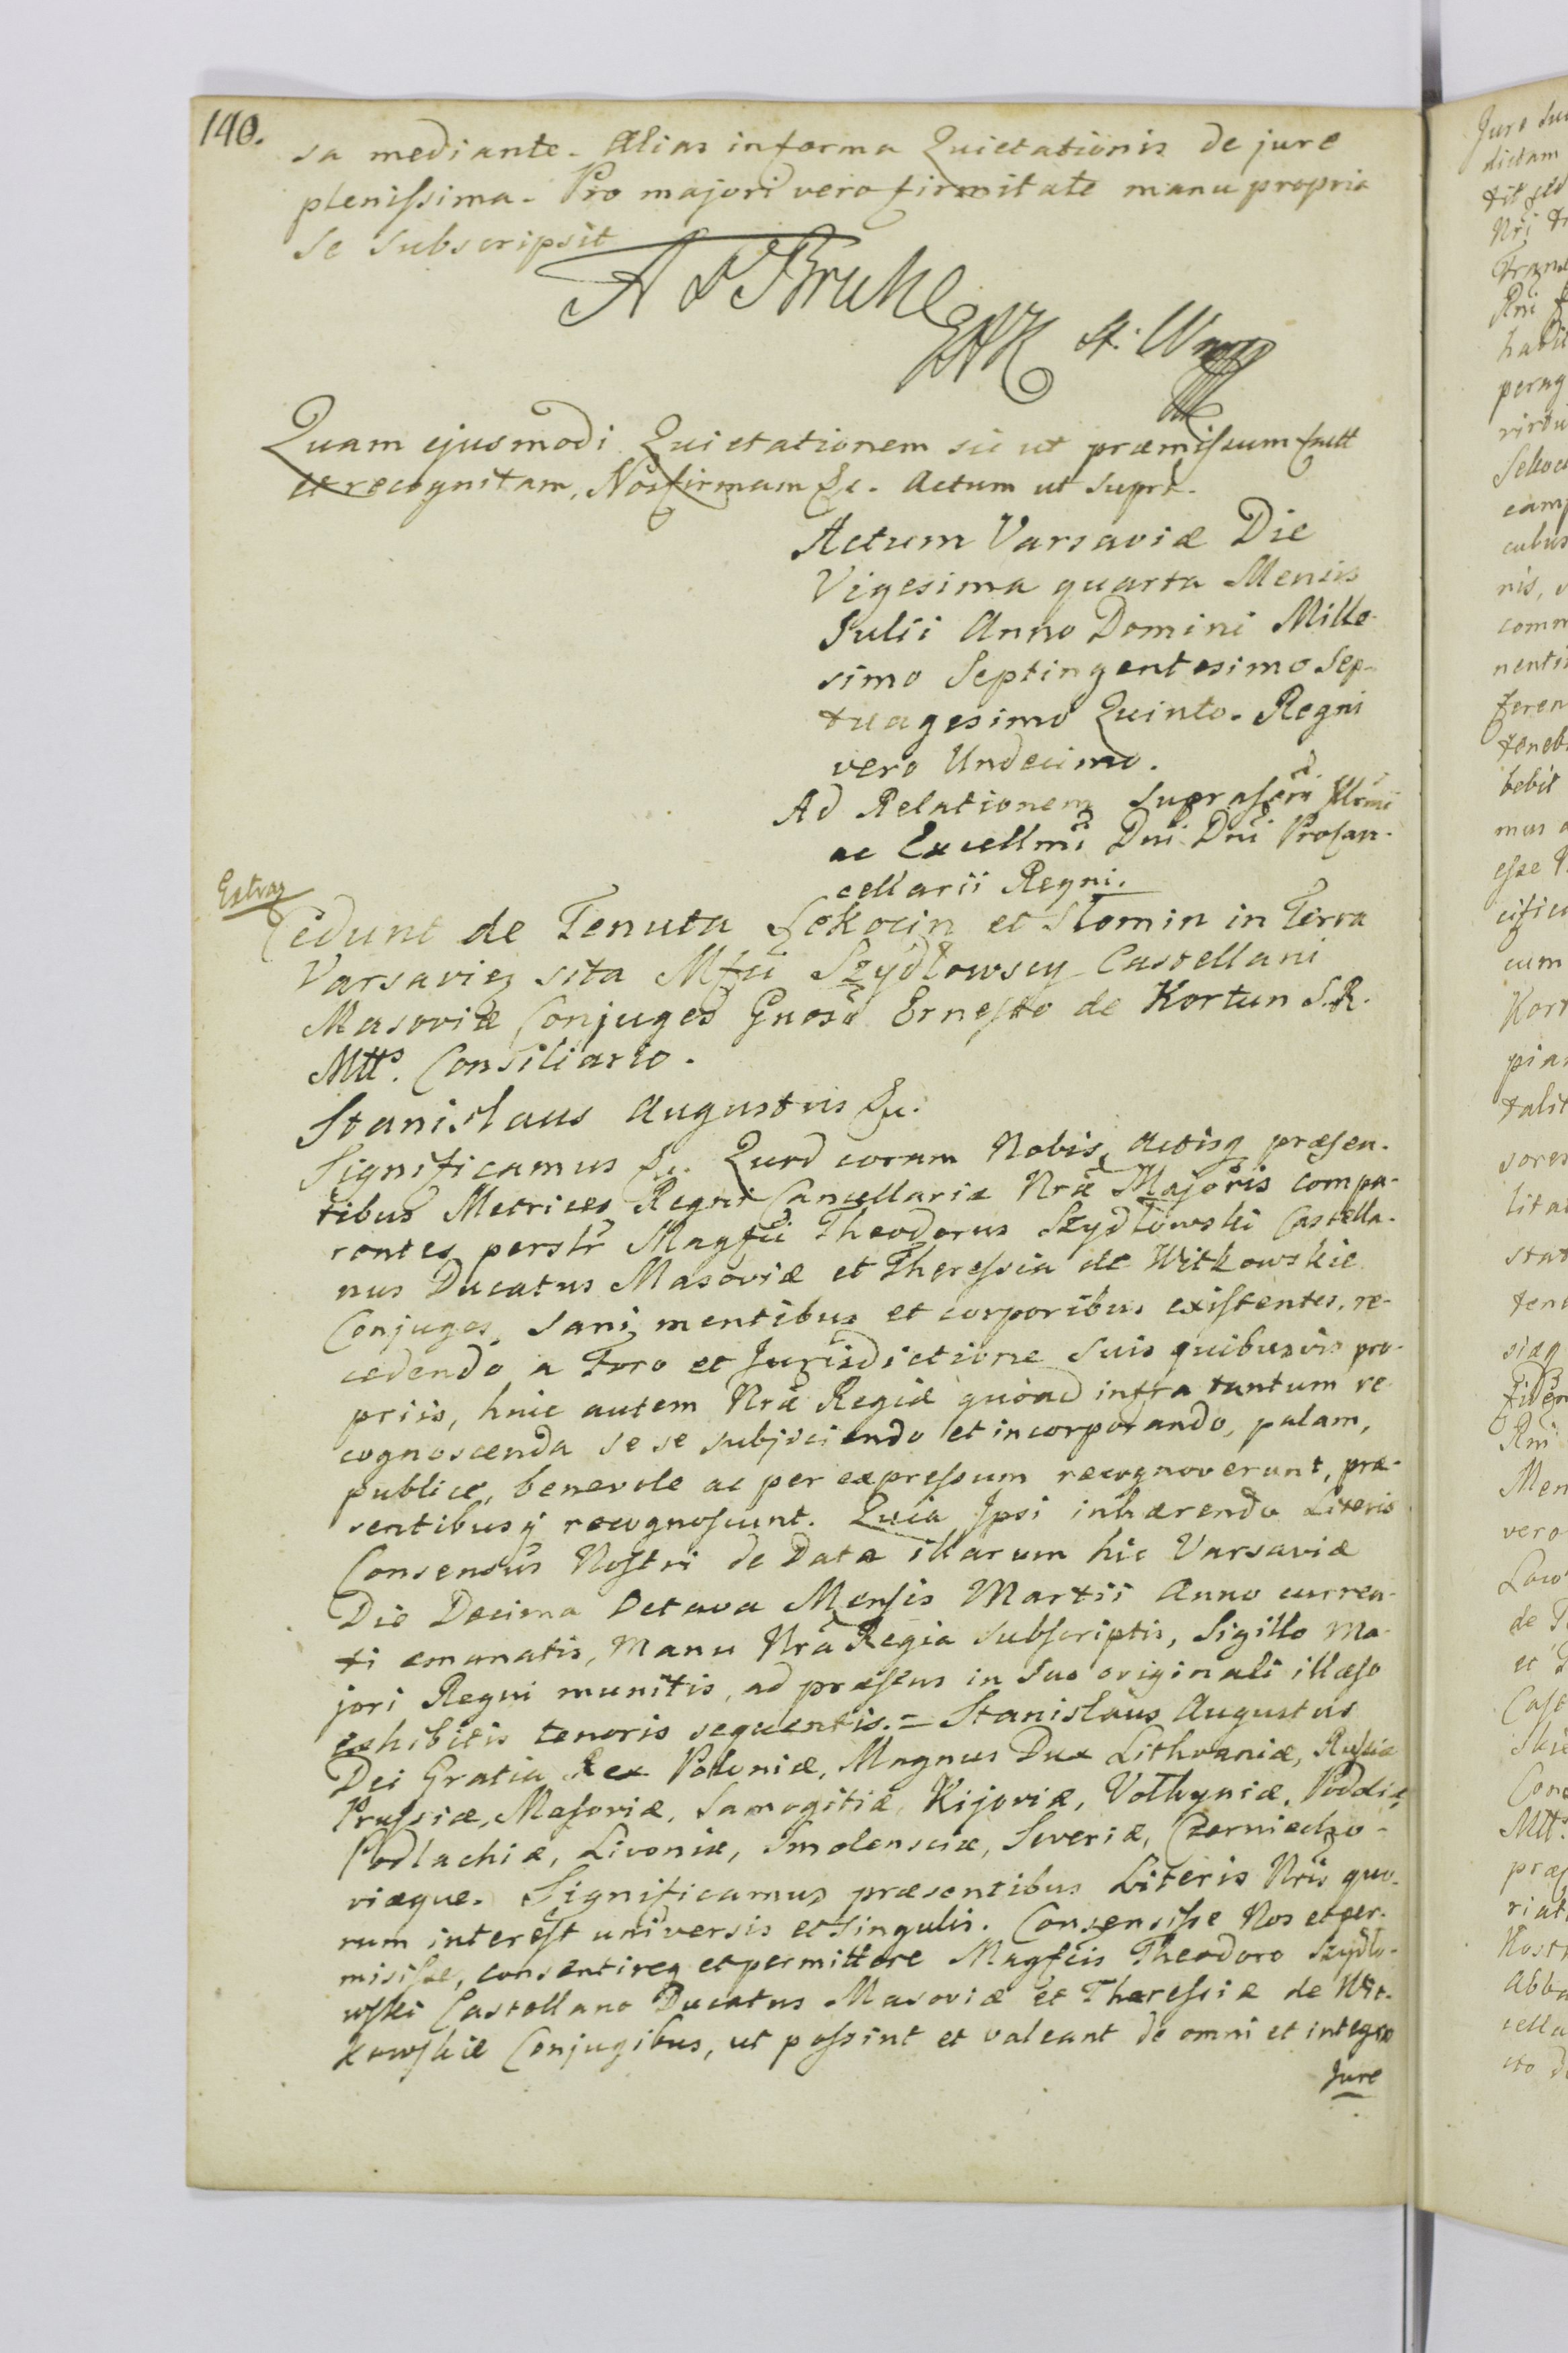 140.
sa mediante. Alias in forma Quietationis de jure
plenissima. Pro majori vero firmitate manu propria
se subscripsit
A F Bruhl
Quam ejusmodi Quietationem sic ut præmissum
et recognitam, Nos firmam &c. Actum ut supra.
Actum Varsaviæ Die
Vigesima quarta Mensis
Julii Anno Domini Mille-
simo Septingentesimo Sep-
tuagesimo Quinto. Regni
vero Undecimo.
Ad Relationem suprascri Illrmi
ac Excellmi Dni Dni Procan-
cellarii Regni.
Extrax
Cedunt de Tenuta Sękocin et Słomin in Terra
Varsavien sita Mfci Szydłowscy Castellani
Masoviæ Conjuges Gnoso Ernesto de Kortun S. R.
Mtts. Consiliario.
Stanislaus Augustus &c.
Significamus &c. Quod coram Nobis, Actisq præsen-
tibus Metrices Regni Cancellariæ Nræ Majoris compa-
rentes personlr Magfci Theodorus Szydłowski Castella-
nus Ducatus Masoviæ et Theressia de Witkowskie
Conjuges, sani mentibus et corporibus existentes, re-
cedendo a Foro et Jurisdictione suis quibusvis pro-
priis, huic autem Nræ Regiæ quoad infra tantum re-
cognoscenda sese subjiciendo et incorporando, palam,
publice, benevole ac per expressum recognoverunt, præ-
sentibusq recognoscunt. Quia Ipsi inhærendo Literis
Consensus Nostri de Data illarum hic Varsaviæ
Die Decima Octava Mensis Martii Anno curren-
ti emanatis, manu Nra Regia subscriptis, Sigillo Ma-
jori Regni munitis, ad præsens in suo originali illæso
exhibitis tenoris sequentis. = Stanislaus Augustus
Dei Gratia Rex Poloniæ, Magnus Dux Lithvaniæ, Russiæ
Prussiæ, Masoviæ, Samogitiæ, Kijoviæ, Volhyniæ, Podoliæ,
Podlachiæ, Livoniæ, Smolensciæ, Severiæ, Czerniecho-
viæque. Significamus præsentibus Literis Nris quo-
rum interest universis et singulis. Consensisse Nos et per-
misisse, consentireq et permittere Magfcis Theodoro Szydło-
wski Castellano Ducatus Masoviæ et Theressiæ de Wit-
kowskie Conjugibus, ut possint et valeant de omni et integro
Jure